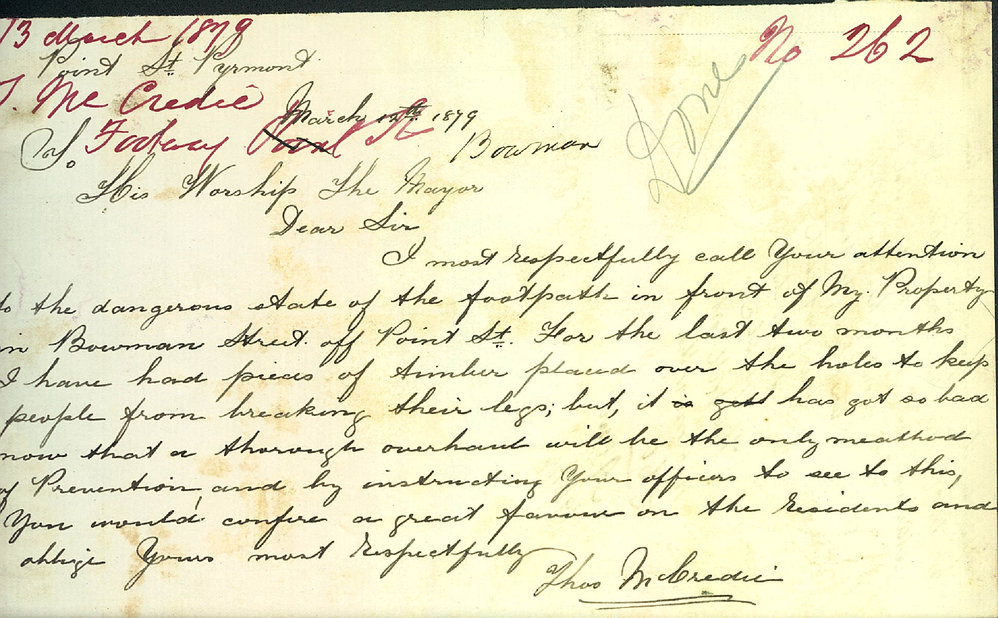 13 March 1879
No 262
Point St. Pyrmont.
T. McCredie
March 12th 1879
Footway Point St Bowman
Done
To
His Worship The Mayor
Dear Sir
I most respectfully call Your attention
to the dangerous state of the footpath in front of My Property
in Bowman Street. off Point St. For the last two months
I have had pieces of timber placed over the holes to keep
people from breaking their legs; but, it is gett has got so bad
now that a thorough overhaul will be the only meathod
of Prevention, and by instructing Your officers to see to this,
You would confire a great favour on the Residents and
oblige Yours most Respectfully
Thos McCredie